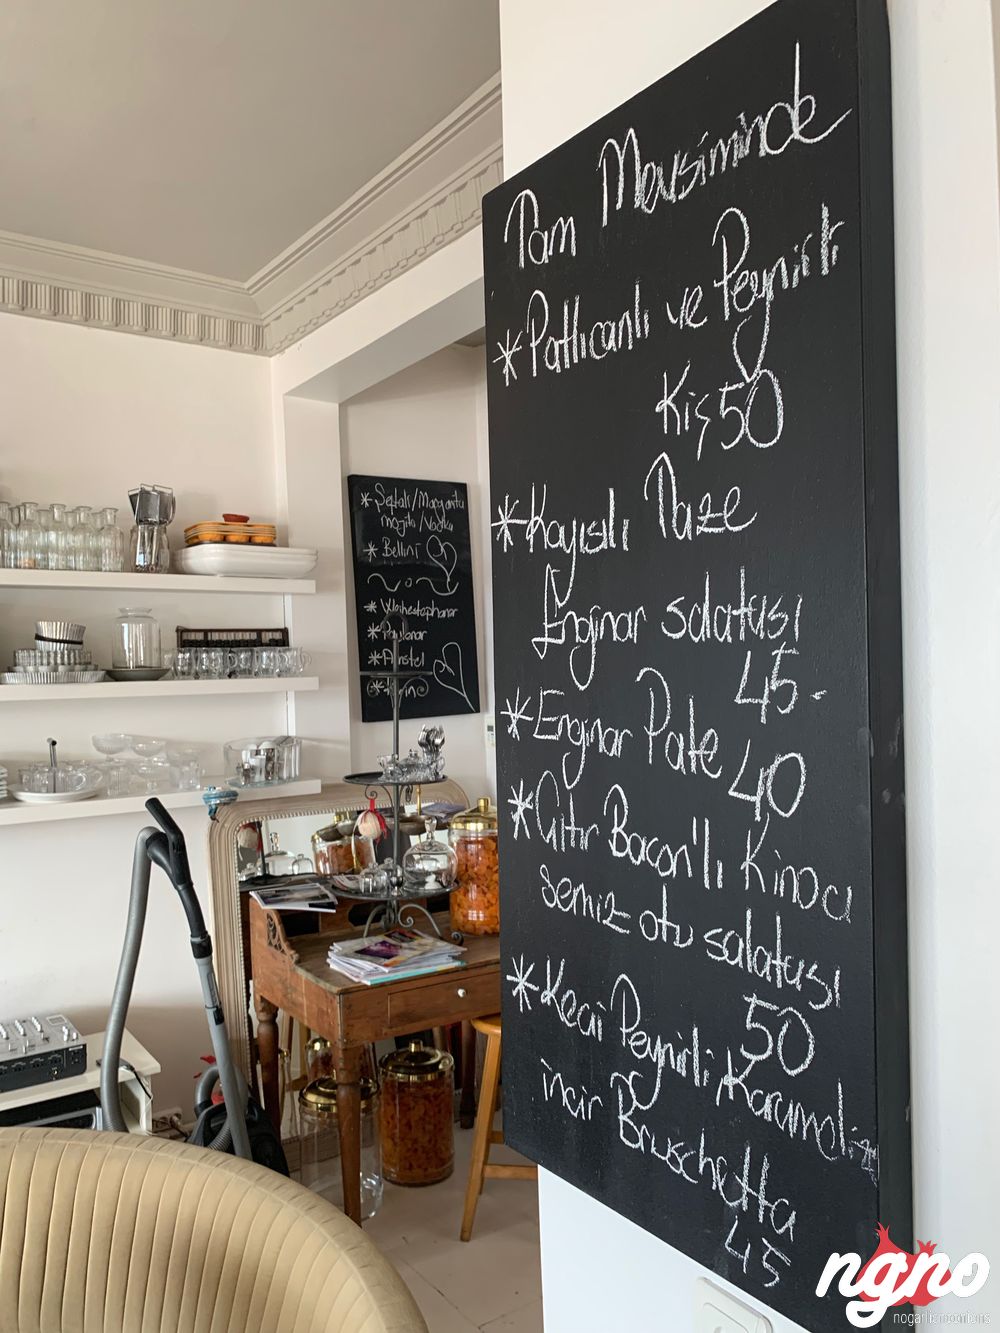 Tam Mevsiminde
*Patlıcanlı ve Peynirli
Kiş 50
*Kayısılı Taze
Enginar salatası
45-
*Enginar Pate 40
*Çıtır Bacon'lı Kinoa
semiz otu salatası
50
*Keçi Peynirli Karamelize
incir Bruschetta
45
*Şeftali/Margarita
mojito/Vodka
*Bellini
*Weihestephaner
*Paulaner
*Amstel
ngno